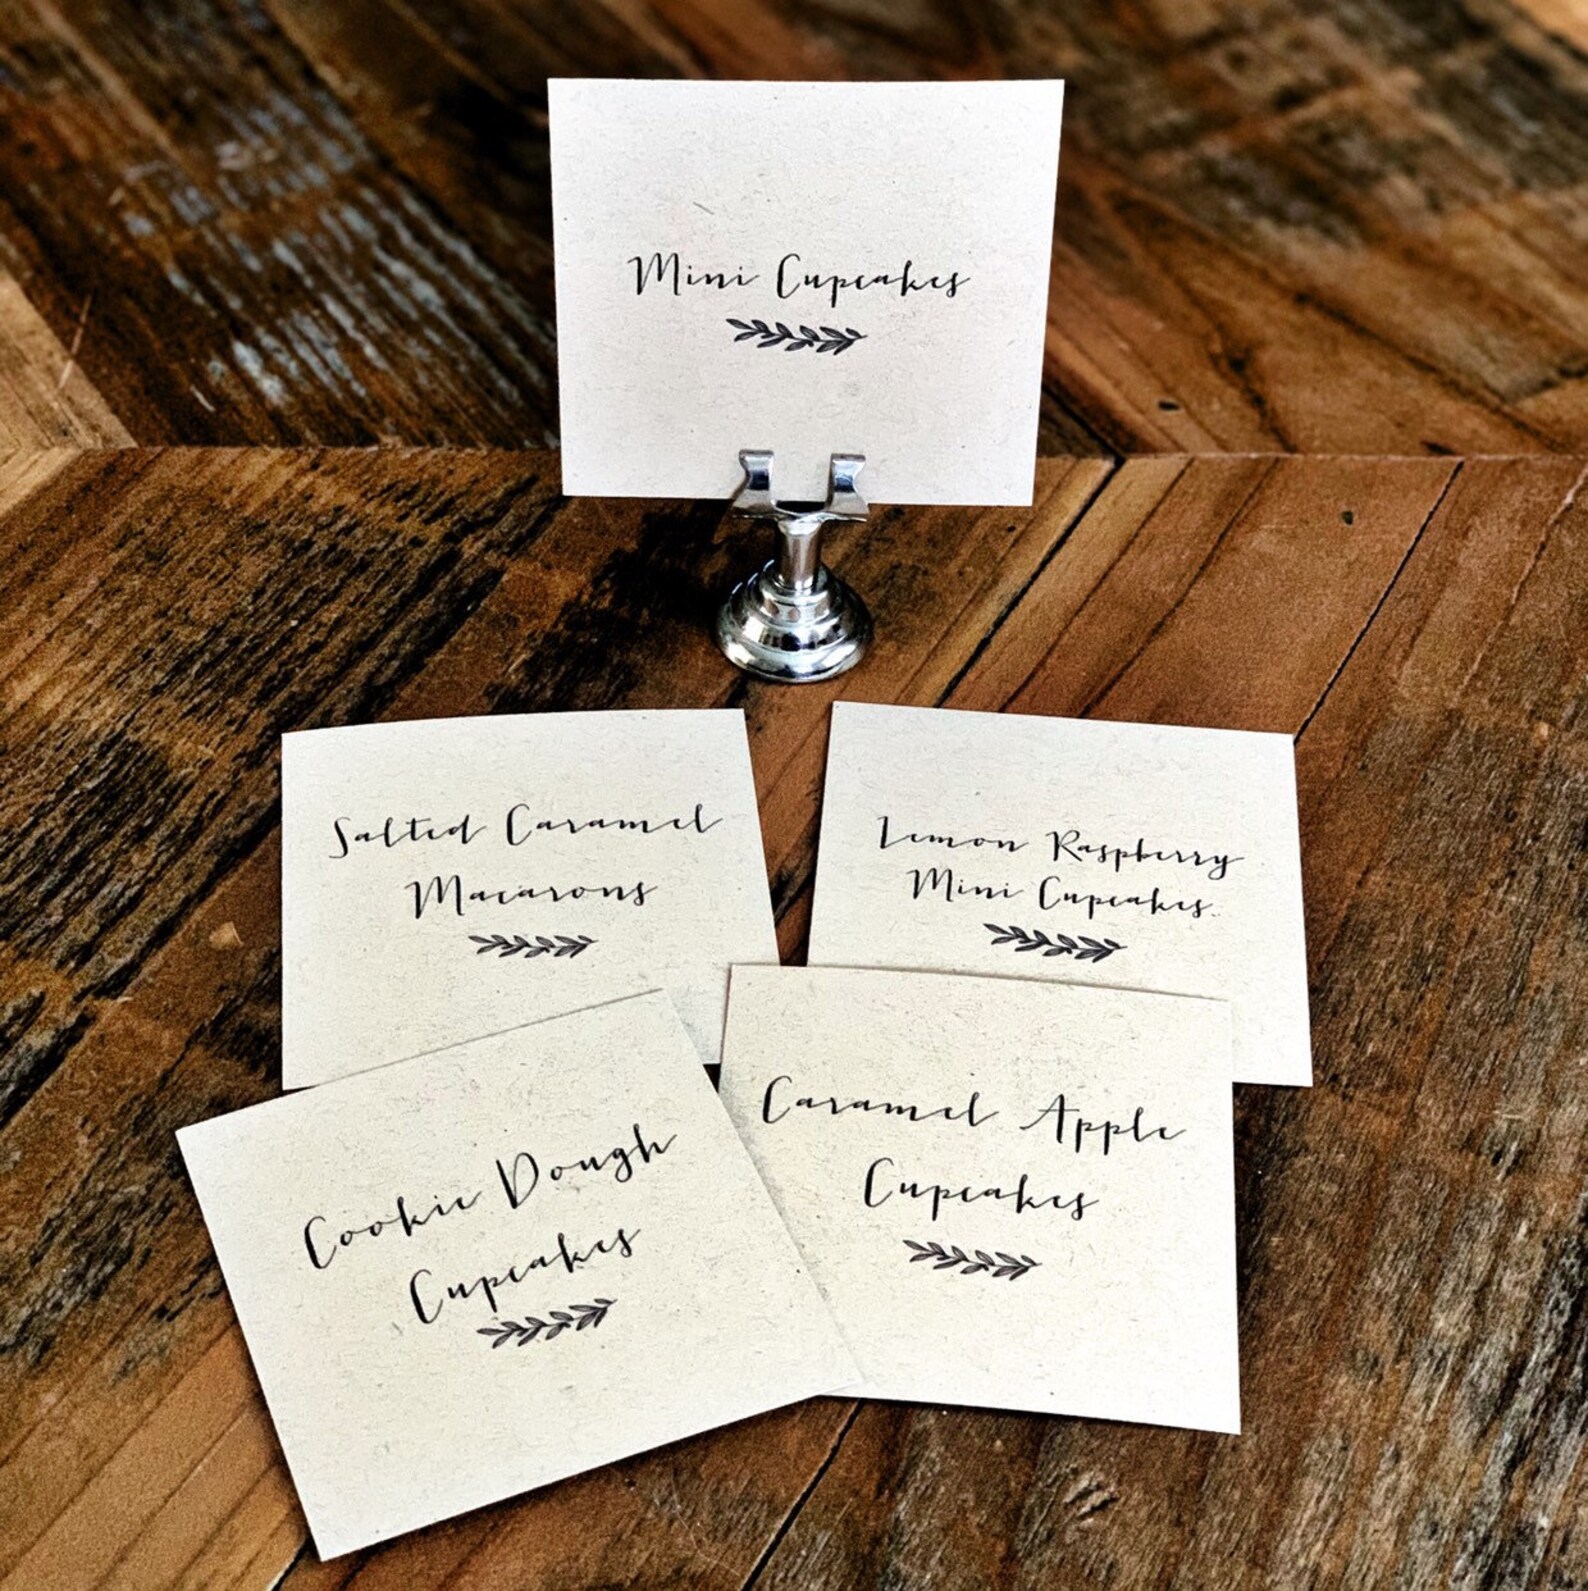 Mini Cupcakes
Salted Caramel
Macarons
Lemon Raspberry
Mini Cupcakes
Cookie Dough
Cupcakes
Caramel Apple
Cupcakes